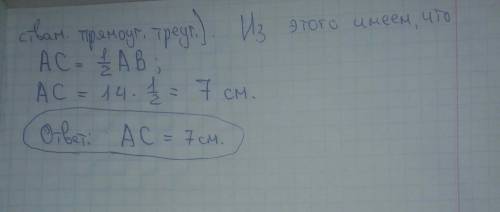 ствам. прямоуг. треуг.]. Из этого имеем, что
AC = 1/2 AB;
AC = 14 · 1/2 = 7 см.
Ответ: AC = 7 см.